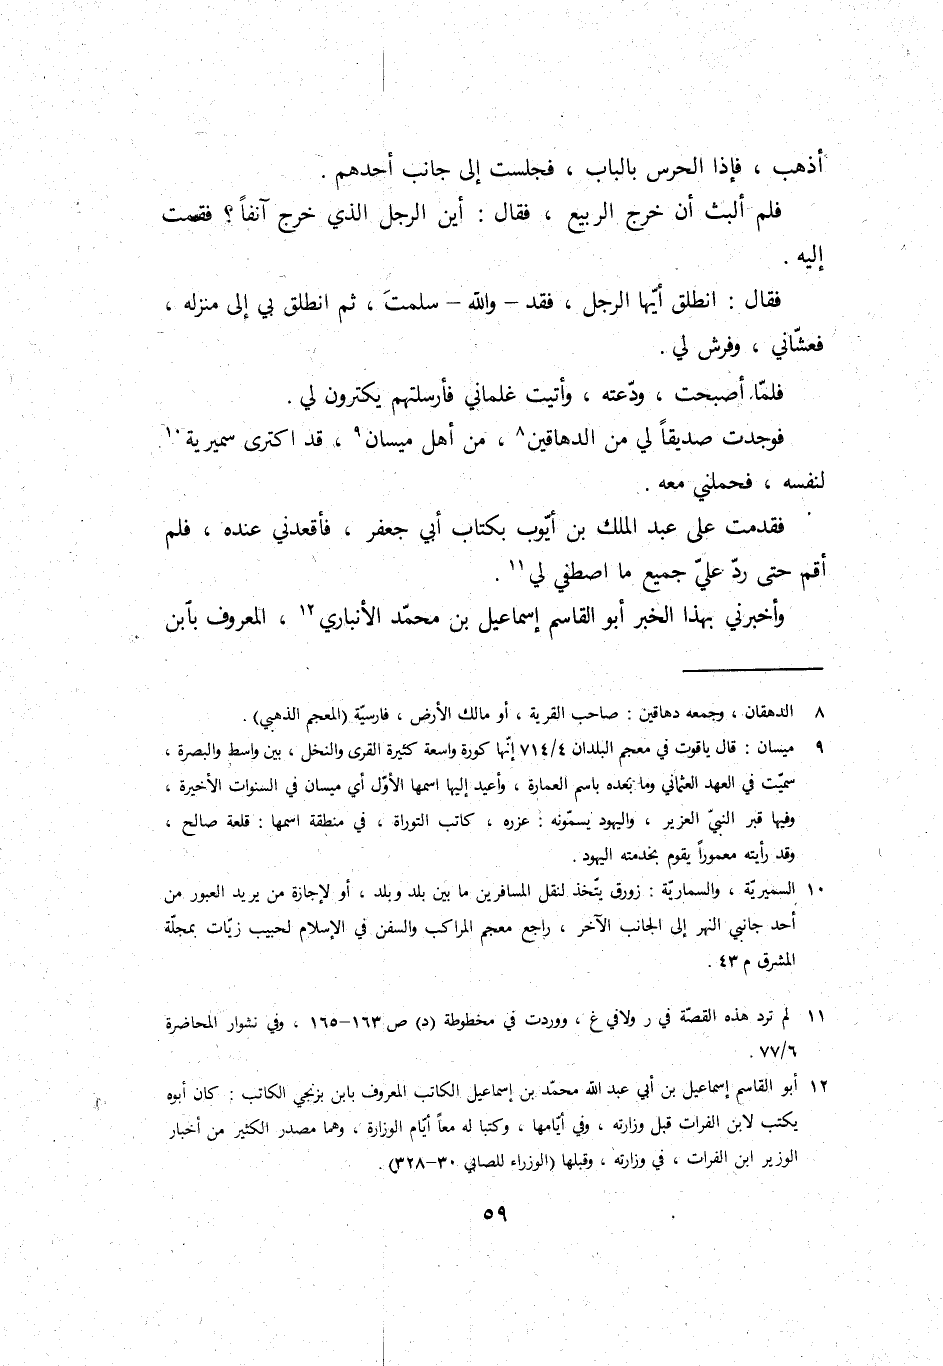 أذهب ، فإذا الحرس بالباب ، فجلست إلى جانب أحدهم .
فلم ألبث أن خرج الربيع ، فقال : أين الرجل الذي خرج آنفاً ؟ فقمت
إليه .
فقال : انطلق أيّها الرجل ، فقد – والله – سلمتَ ، ثم انطلق بي إلى منزله ،
فعشّاني ، وفرش لي .
فلمّا أصبحت ، ودّعته ، وأتيت غلماني فأرسلتهم يكترون لي .
فوجدت صديقاً لي من الدهاقين٨ ، من أهل ميسان٩ ، قد اكترى سميرية١٠
لنفسه ، فحملني معه .
فقدمت على عبد الملك بن أيّوب بكتاب أبي جعفر ، فأقعدني عنده ، فلم
أقم حتى ردّ عليّ جميع ما اصطفي لي١١ .
وأخبرني بهذا الخبر أبو القاسم إسماعيل بن محمّد الأنباري١٢ ، المعروف بآبن
٨ الدهقان ، وجمعه دهاقين : صاحب القرية ، أو مالك الأرض ، فارسيّة (المعجم الذهبي) .
٩ ميسان : قال ياقوت في معجم البلدان ٧١٤/٤ إنّها كورة واسعة كثيرة القرى والنخل ، بين واسط والبصرة ،
سمّيت في العهد العثماني وما بعده باسم العمارة ، وأعيد إليها اسمها الأوّل أي ميسان في السنوات الأخيرة ،
وفيها قبر النبيّ العزير ، واليهود يسمّونه : عزره ، كاتب التوراة ، في منطقة اسمها : قلعة صالح ،
وقد رأيته معموراً يقوم بخدمته اليهود .
١٠ السميريّة ، والسماريّة : زورق يتّخذ لنقل المسافرين ما بين بلد وبلد ، أو لإجازة من يريد العبور من
أحد جانبي النهر إلى الجانب الآخر ، راجع معجم المراكب والسفن في الإسلام لحبيب زيّات بمجلّة
المشرق م ٤٣ .
١١ لم ترد هذه القصّة في ر ولافي غ ، ووردت في مخطوطة (د) ص ١٦٣–١٦٥ ، وفي نشوار المحاضرة
٧٧/٦ .
١٢ أبو القاسم إسماعيل بن أبي عبد الله محمّد بن إسماعيل الكاتب المعروف بابن بزنجي الكاتب : كان أبوه
يكتب لابن الفرات قبل وزارته ، وفي أيّامها ، وكتبا له معاً أيّام الوزارة ، وهما مصدر الكثير من أخبار
الوزير ابن الفرات ، في وزارته ، وقبلها (الوزراء للصابي ٣٠–٣٢٨) .
٥٩